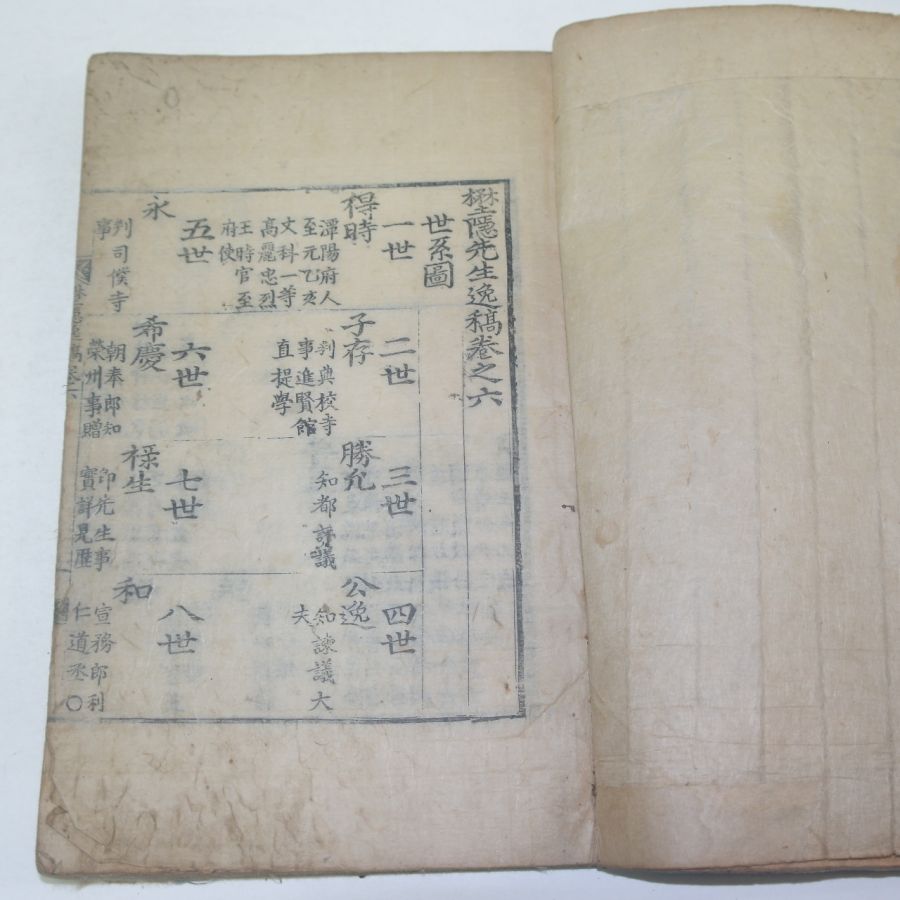 壄隱先生逸稿卷之六
世系圖
一世
得時
潭陽府人
至元乙亥
文科一等
高麗忠烈
王時官至
府使
二世
子存
判典校寺
事進賢館
直提學
三世
勝允
知都評議
四世
公逸
知諫議大
夫
五世
永
判司僕寺
事
六世
希慶
朝奉郎知
榮州事贈
七世
禄生
卽先生事
實詳見歷
八世
和
宣務郎利
仁道丞〇